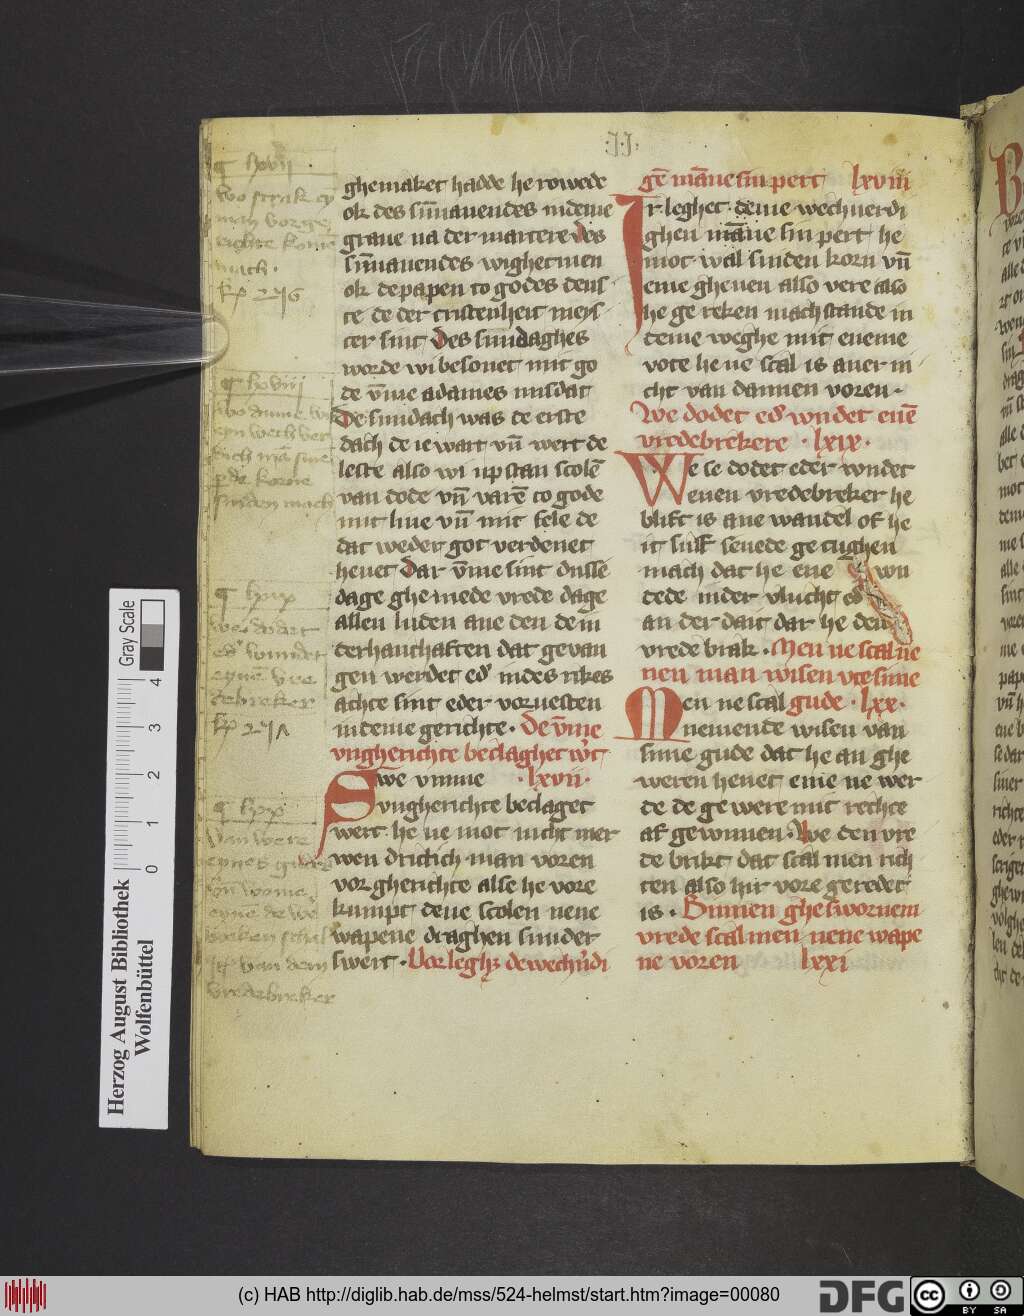 ·II·
ghemaket hadde he rowede
ok des sūnauendes in deme
graue na der martere des
sūnauendes wighet men
ok de papen to godes dens
te de der cristenheit meys
ter sint Des sundaghes
worde wi besonet mit go
de vm̄e adames misdat
De sundach was de erste
dach de ie wart vn̄ wert de
leste also wi upstan scolē
van dode vn̄ varē to gode
mit liue vn̄ mit sele de
dat weder got verdenet
heuet Dar vm̄e sint dusse
dage ghemede vrede dage
allen luden ane den de in
der hanthaften dat gevan
gen werdet ed' in des rikes
achte sint eder voruesten
in deme gerichte · De vm̄e
vngherichte beclaghet w't
Swe vmme · lxvii ·
vngherichte beclaget
wert he ne mot nicht mer
wen drittich man voren
vor gherichte alse he vore
kumpt deue scolen nene
wapene draghen sunder
swert · Vorleghz de wech'ndi
gē mān̄e sin pert lxviii
Ir leghet deme wechuerdi
ghen mān̄e sin pert he
mot wal sniden korn vn̄
eme gheuen also vere also
he ge reken mach stande in
deme weghe mit eneme
vote he ne scal is auer ni
cht van dannen voren ·
We dodet ed' wndet enē
vredebrekere · lxix ·
We se dodet eder wndet
enen vredebreker he
blift is ane wandel of he
it sulf seuede getughen
mach dat he ene wn
dede in der vlucht ed'
an der dait dar he den
vrede brak · Men ne scal ne
nen man wisen vte sime
Men ne scal gude · lxx ·
nemende wisen van
sime gude dat he an ghe
weren heuet eme ne wer
de de gewere mit rechte
af gewunnen · We den vre
de brikt dat scal men rich
ten also hir vore geredet
is · Binnen ghesworuem
vrede scal men nene wape
ne voren lxxi
¶ lxvii
¶ lxviii
¶ lxix
wei dodet
ed' wundet
eyne vre
debreker
¶ lxx
van were
eynes gudes
vredebreker
Gray Scale
0 1 2 3 4
Herzog August Bibliothek
Wolfenbüttel
(c) HAB http://diglib.hab.de/mss/524-helmst/start.htm?image=00080
DFG
cc
BY SA